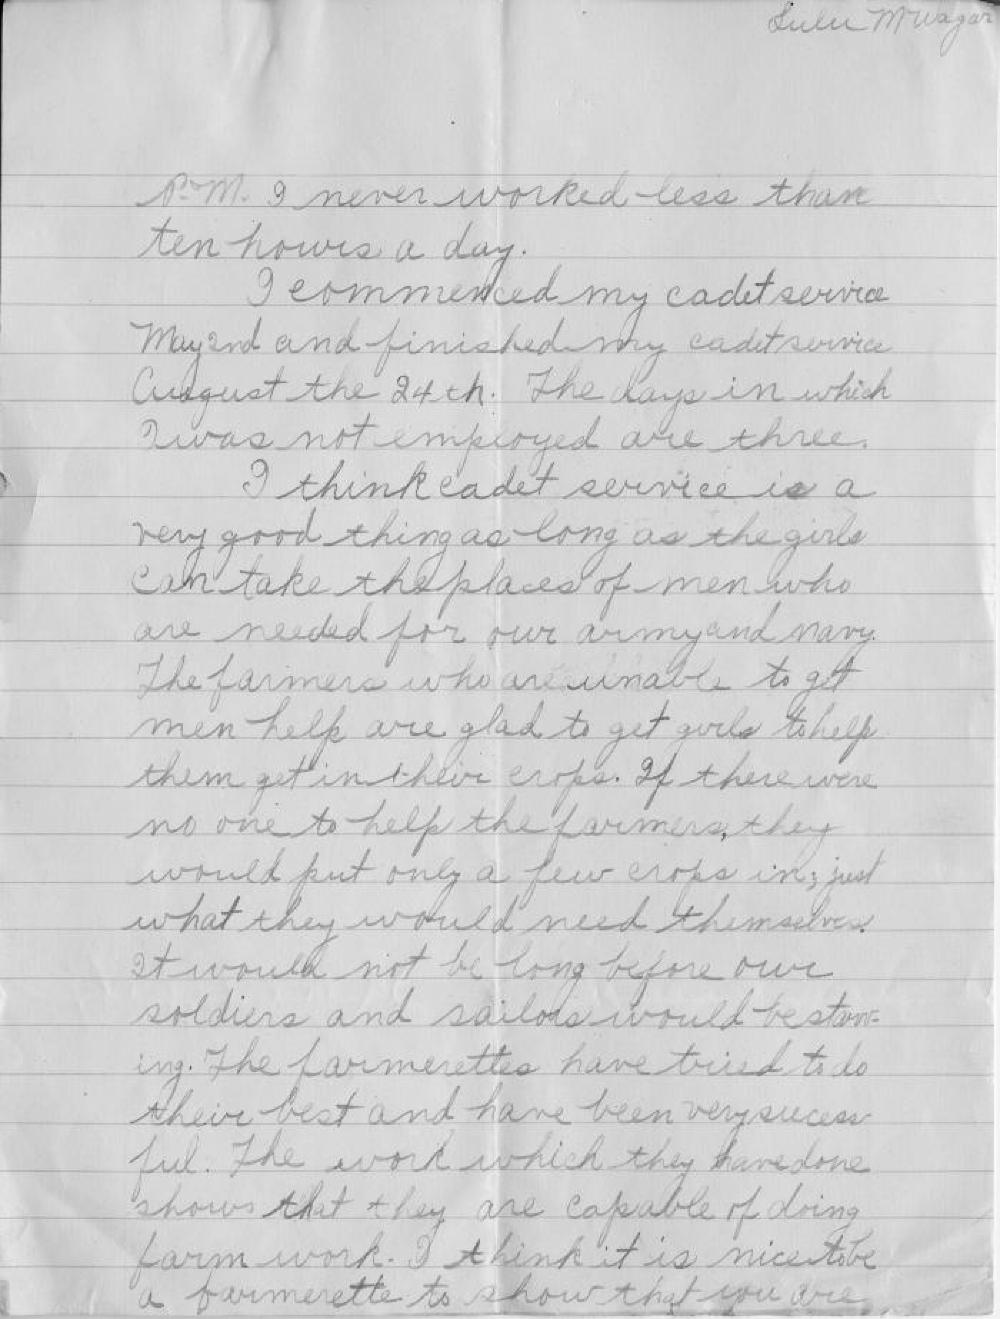 Lulu M Wagar
P.M. I never worked less than
ten hours a day.
I commenced my cadet service
May 2nd and finished my cadet service
August the 24th. The days in which
I was not employed are three.
I think cadet service is a
very good thing as long as the girls
can take the places of men who
are needed for our army and navy.
The farmers who are unable to get
men help are glad to get girls to help
them get in their crops. If there were
no one to help the farmers, they
would put only a few crops in; just
what they would need themselves.
It would not be long before our
soldiers and sailors would be starv-
ing. The farmerettes have tried to do
their best and have been very sucess
ful. The work which they have done
shows that they are capable of doing
farm work. I think it is nice to be
a farmerette to show that you are